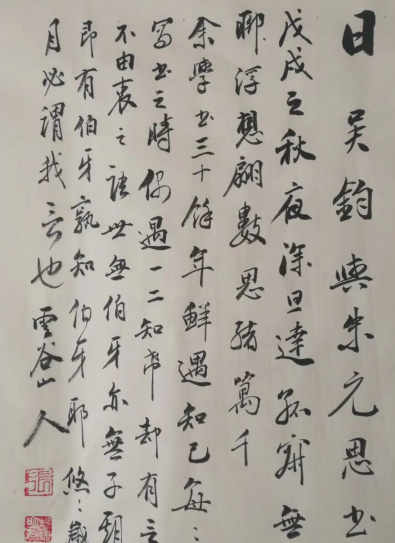 日吴鈞與朱元思书
戊戌之秋夜深旦達孤無
聊浮想翩數思绪萬千
余學书三十餘年鮮遇知己每〻
寫书之時偶遇一二知却有言
不由衷之語世無伯牙亦無子期
即有伯牙孰知伯牙耶悠〻歲
月必謂我言也雲谷山人